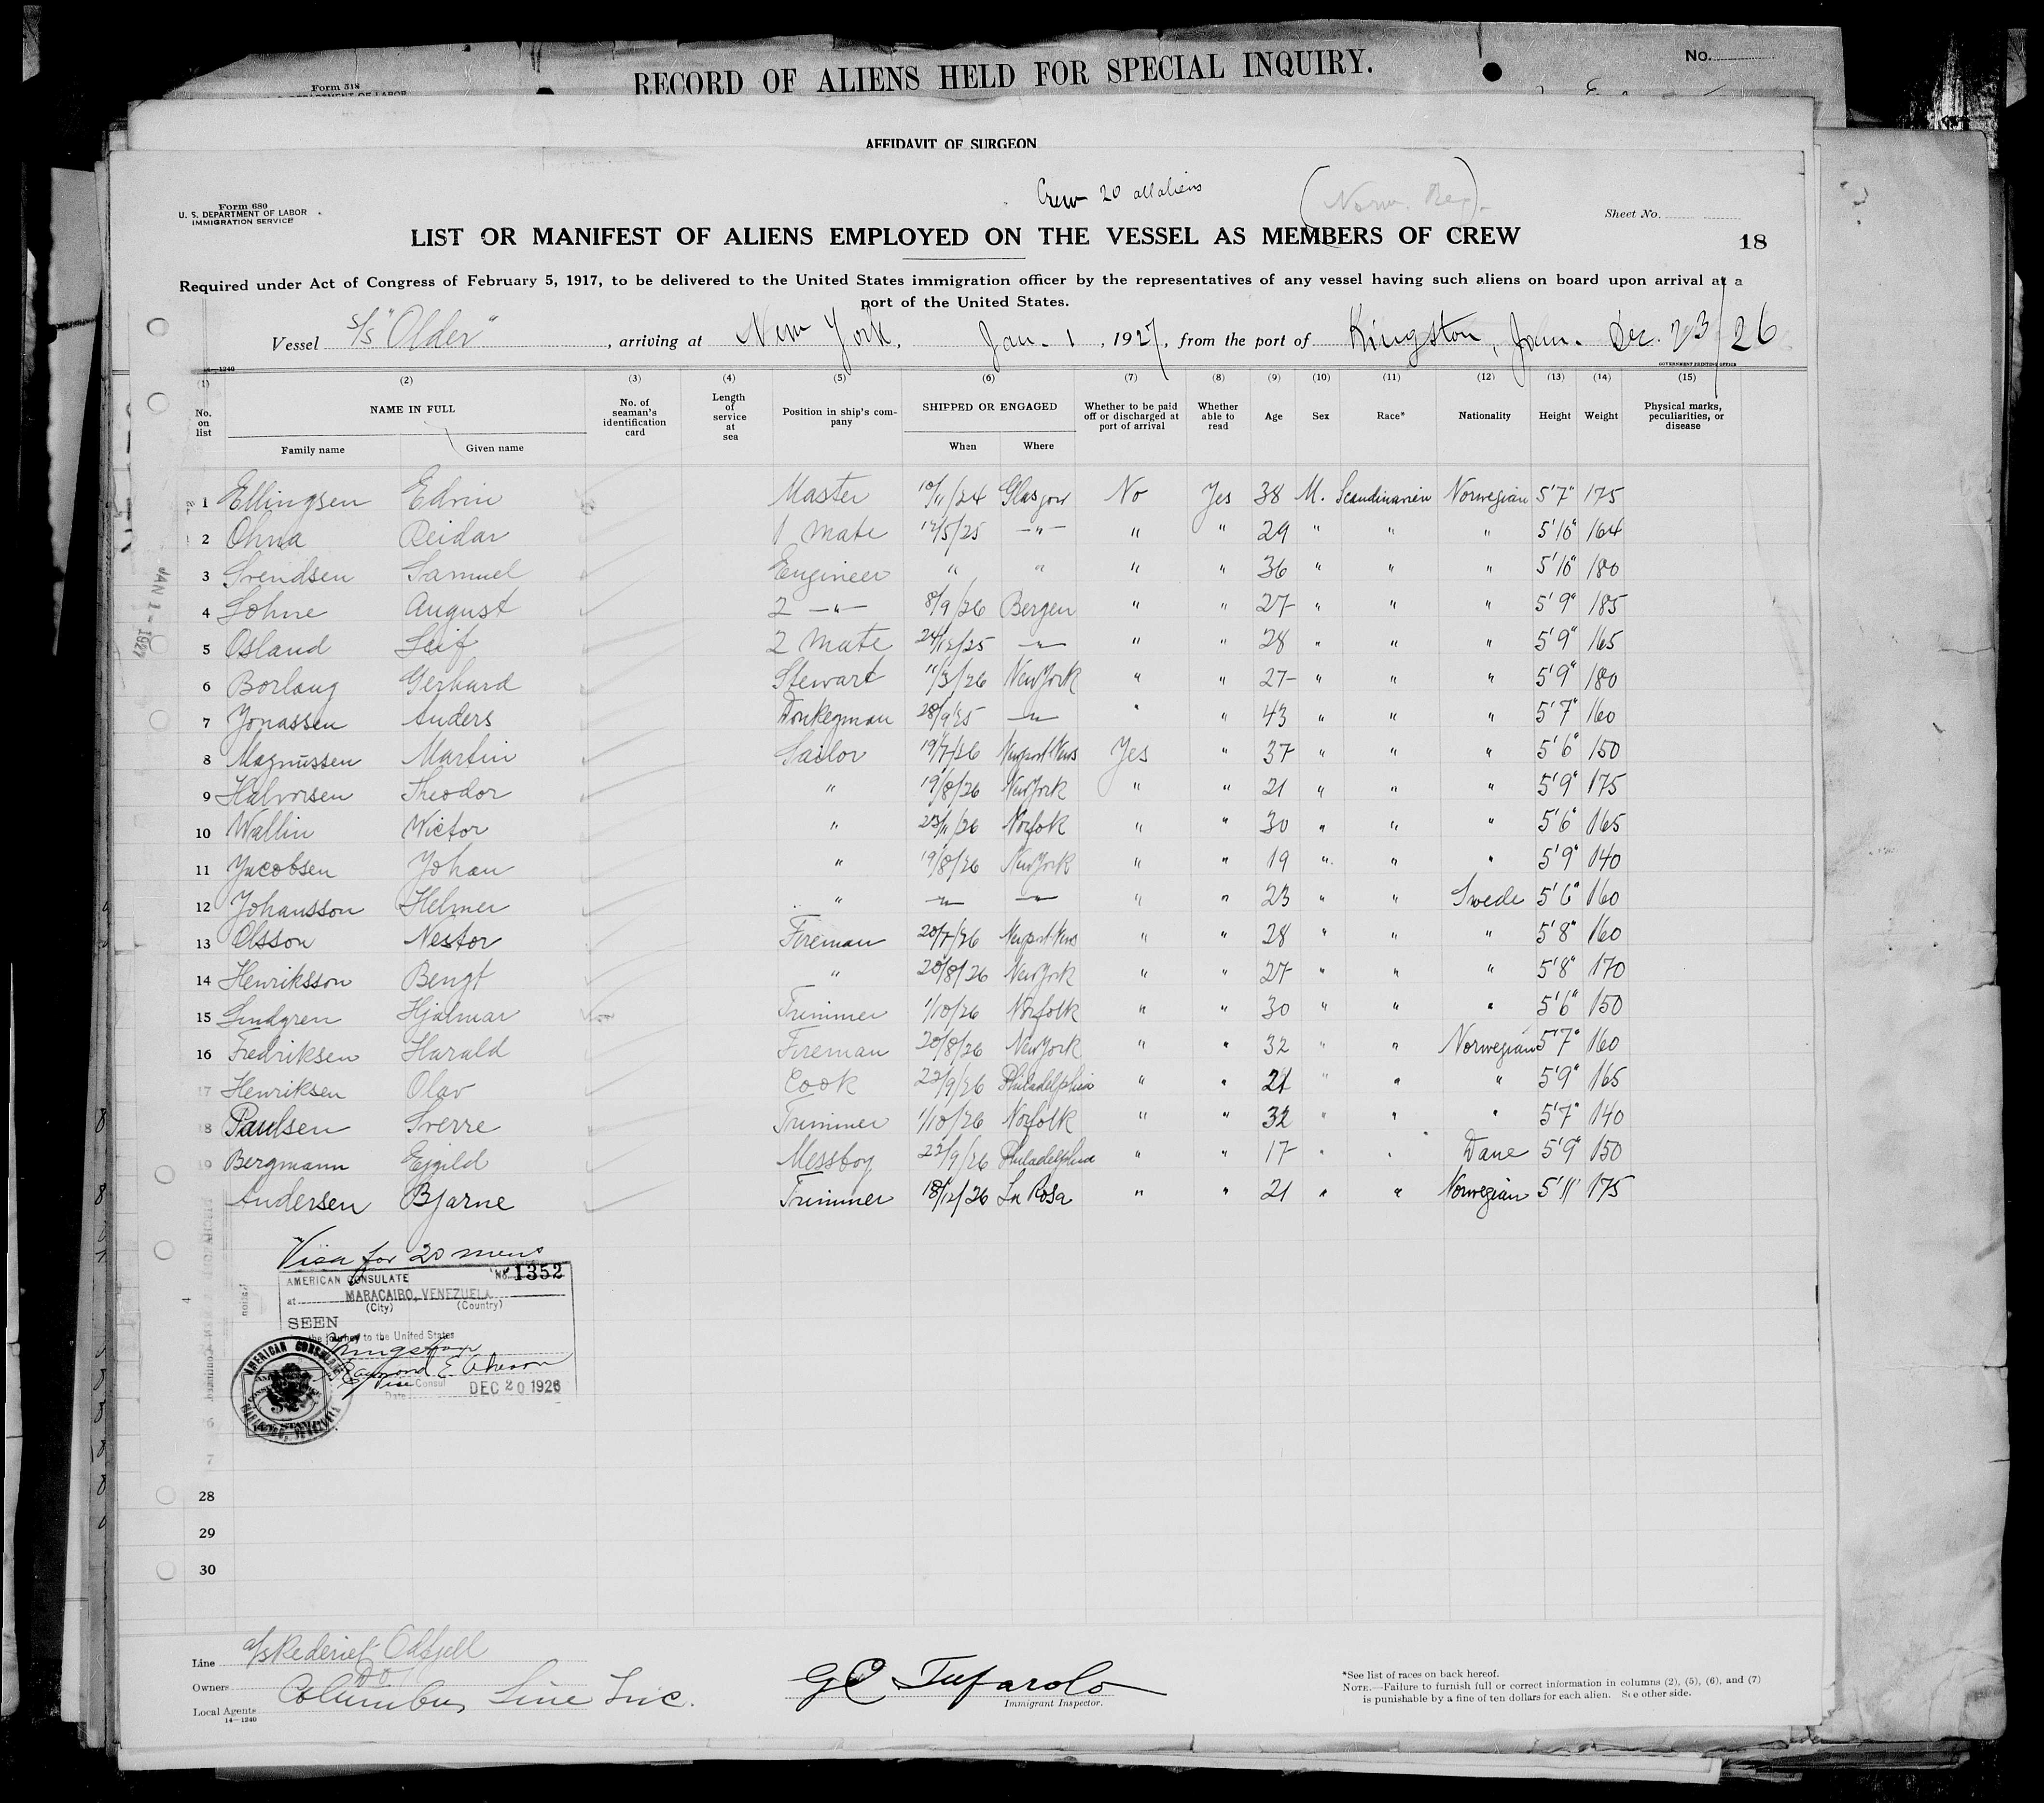 RECORD OF ALIENS HELD FOR SPECIAL INQUIRY.
No.
Form 518
AFFIDAVIT OF SURGEON
Crew 20 all aliens
(Norw. Reg).
Form 680
U. S. DEPARTMENT OF LABOR
IMMIGRATION SERVICE
Sheet No.
LIST OR MANIFEST OF ALIENS EMPLOYED ON THE VESSEL AS MEMBERS OF CREW
18
Required under Act of Congress of February 5, 1917, to be delivered to the United States immigration officer by the representatives of any vessel having such aliens on board upon arrival at a
port of the United States.
Vessel S/S "Older", arriving at New York, Jan. 1, 1927, from the port of Kingston, Jam. Dec. 23/26
14—1240
GOVERNMENT PRINTING OFFICE
(1) (2) (3) (4) (5) (6) (7) (8) (9) (10) (11) (12) (13) (14) (15)
No. on list NAME IN FULL Family name Given name No. of seaman's identification card Length of service at sea Position in ship's company SHIPPED OR ENGAGED When Where Whether to be paid off or discharged at port of arrival Whether able to read Age Sex Race* Nationality Height Weight Physical marks, peculiarities, or disease
1 Ellingsen Edvin Master 10/11/24 Glasgow No Yes 38 M. Scandinavien Norwegian 5'7" 175
2 Ohna Reidar 1 Mate 12/5/25 —"— " " 29 " " " 5'10" 164
3 Svendsen Samuel Engineer " " " " 36 " " " 5'10" 180
4 Lohne August 2 —"— 8/9/26 Bergen " " 27 " " " 5'9" 185
5 Osland Leif 2 Mate 24/12/25 —"— " " 28 " " " 5'9" 165
6 Borlaug Gerhard Stewart 11/3/26 New York " " 27 " " " 5'9" 180
7 Jonassen Anders Donkeyman 28/9/25 —"— " " 43 " " " 5'7" 160
8 Magnussen Martin Sailor 19/7/26 Newport News Yes " 37 " " " 5'6" 150
9 Halvorsen Theodor " 19/8/26 New York " " 21 " " " 5'9" 175
10 Wallin Wictor " 23/11/26 Norfolk " " 30 " " " 5'6" 165
11 Jacobsen Johan " 19/8/26 New York " " 19 " " " 5'9" 140
12 Johansson Helmer " —"— —"— " " 23 " " Swede 5'6" 160
13 Olsson Nestor Fireman 20/7/26 Newport News " " 28 " " " 5'8" 160
14 Henriksson Bengt " 20/8/26 New York " " 27 " " " 5'8" 170
15 Lindgren Hjalmar Trimmer 1/10/26 Norfolk " " 30 " " " 5'6" 150
16 Fredriksen Harald Fireman 20/8/26 New York " " 32 " " Norwegian 5'7" 160
17 Henriksen Olav Cook 22/9/26 Philadelphia " " 21 " " " 5'9" 165
8 Paulsen Sverre Trimmer 1/10/26 Norfolk " " 32 " " " 5'7" 140
19 Bergmann Ejgild Messboy 22/9/26 Philadelphia " " 17 " " Dane 5'9" 150
Andersen Bjarne Trimmer 18/12/26 La Rosa " " 21 " " Norwegian 5'11" 175
JAN 1 - 1927
Visa for 20 mens
AMERICAN CONSULATE No. 1352
at MARACAIBO, VENEZUELA
(City) (Country)
SEEN
the journey to the United States
Kingston
Raymond E.
Vice Consul
Date DEC 20 1926
AMERICAN CONSULATE
28
29
30
Line a/s Rederiet Odfjell
Owners Do
Local Agents Columbus Line Inc.
14—1240
G C Tufarolo
Immigrant Inspector.
*See list of races on back hereof.
NOTE.—Failure to furnish full or correct information in columns (2), (5), (6), and (7)
is punishable by a fine of ten dollars for each alien. See other side.